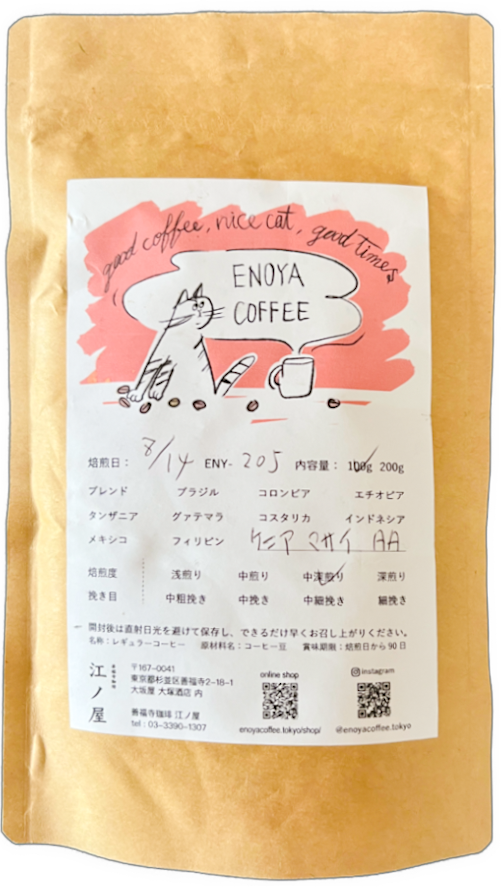 good coffee, nice cat, good times
ENOYA
COFFEE
焙煎日: 8/14 ENY- 205 内容量: 100g 200g
ブレンド ブラジル コロンビア エチオピア
タンザニア グァテマラ コスタリカ インドネシア
メキシコ フィリピン ケニア マサイ AA
焙煎度 浅煎り 中煎り 中深煎り 深煎り
挽き目 中粗挽き 中挽き 中細挽き 細挽き
開封後は直射日光を避けて保存し、できるだけ早くお召し上がりください。
名称:レギュラーコーヒー 原材料名:コーヒー豆 賞味期限:焙煎日から90日
江ノ屋
〒167-0041
東京都杉並区善福寺2-18-1
大坂屋 大塚酒店 内
善福寺珈琲 江ノ屋
tel : 03-3390-1307
online shop
enoyacoffee.tokyo/shop/
instagram
@enoyacoffee.tokyo